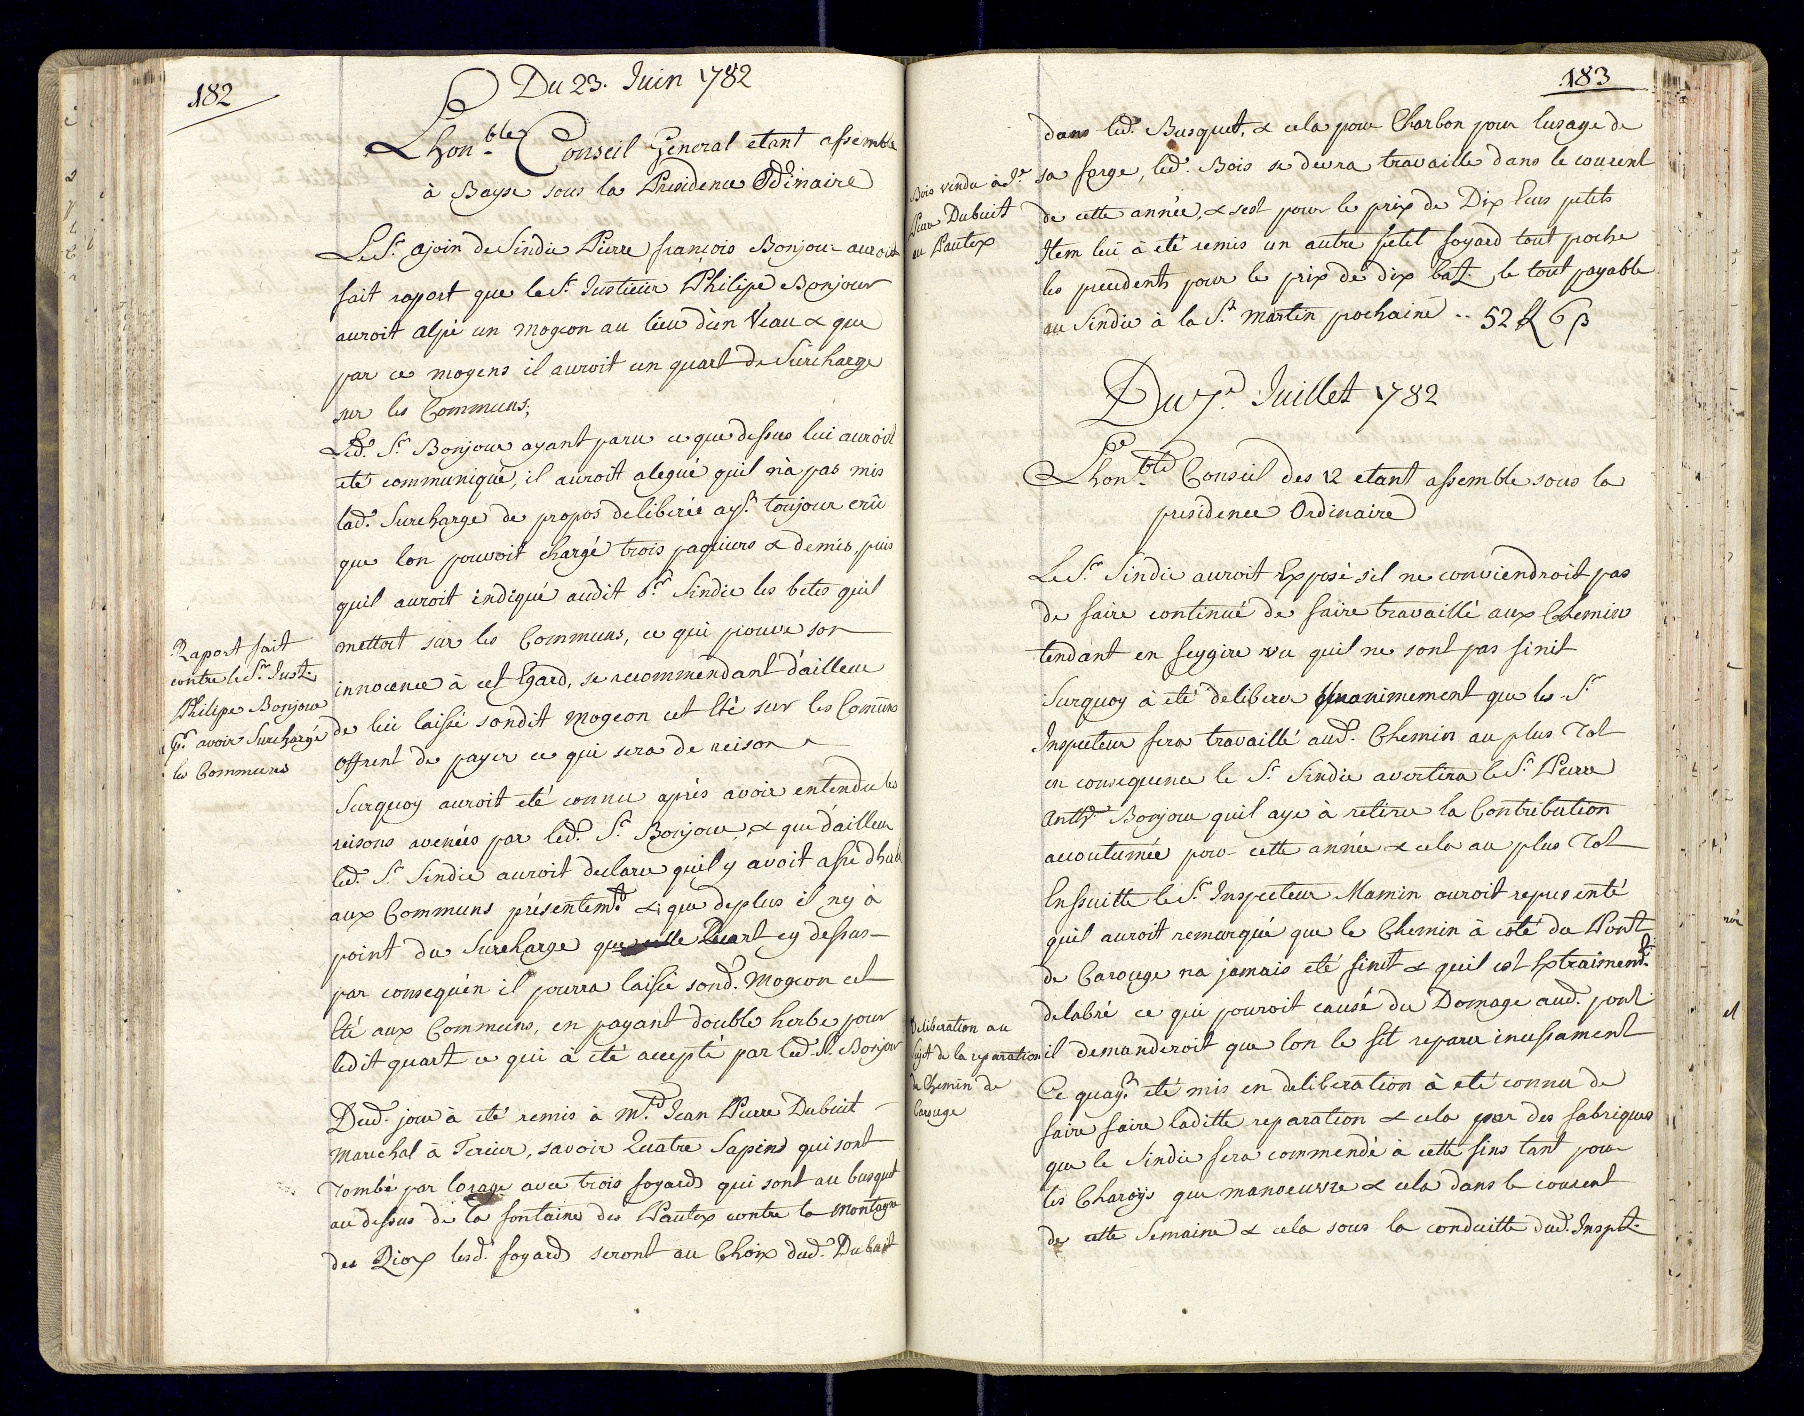 182
Du 23. Juin 1782
Lhon.ble Conseil General etant assemble
à Baÿse sous la Presidence Ordinaire
Le Sr. ajoin de Sindic Pierre françois Bonjour auroit
fait raport que le Sr. Justicier Philipe Bonjour
auroit alpé un mogeon au lieu d'un Veau & que
par ce moyens il auroit un quart de Surcharge
sur les Communs;
Led. Sr. Bonjour ayant paru ce que dessus lui auroit
eté communiqué, il auroit alegué quil n'à pas mis
lad. Surcharge de propos deliberée ayt. toujour crû
que lon pouvoit chargé trois paquiers & demis, puis
quil auroit indiqué audit Sr. Sindic les betes quil
mettoit sur les Communs, ce qui prouve son
innocence à cet Egard, se recommendant d'ailleur
de lui laissé sondit mogeon cet Eté sur les Comuns
offrent de payer ce qui sera de reison
Surquoy auroit eté connu aprés avoir entendu les
reisons avenées par led. Sr. Bonjour, & que d'ailleur
led. Sr. Sindic auroit declaré quil y avoit assé dherbe
aux Communs présentemt. & que deplus il ny à
point du Surcharge que Quart cy dessus
par consequén il pourra laissé sond. Mogeon cet
Eté aux Communs, en payant double herbe pour
ledit quart ce qui à eté accepté par led. Sr. Bonjour
Dud. jour à eté remis à Mr. Jean Pierre Dubuit
Marechal à Ferieur, savoir Quatre Sapins qui sont
Tombé par lorage avec trois foyards qui sont au busquet
au dessus de la fontaine des Pautex contre la Montagne
des Riox lesd. foyards seront au Choix dud. Dubuit
Raport fait
contre le Sr. Just.
Philipe Bonjour
pr. avoir Surchargé
les Communs
183
dans led. Busquet, & cela pour Charbon pour lusage de
sa forge, led. Bois se devra travaillé dans le courent
de cette année, & sest pour le prix de Dix Ecus petits
Item lui à eté remis un autre petit foyard tout proche
les precedents pour le prix de dix batz, le tout payable
au Sindic à la St. Martin prochaine .. 52 ft 6 ß
Bois vendu à Jn.
Pierre Dubuit
au Pautex
Du 7e. Juillet 1782
Lhon.ble Conseil des 12 etant assemble sous la
presidence Ordinaire
Le Sr. Sindic auroit Exposé s'il ne conviendroit pas
de faire continué de faire travaillé aux Chemin
tendant en feygire vu quil ne sont pas finit
Surquoy à eté deliberer Unanimement que les Sr.
Inspecteur fera travaillé aud. Chemin au plus Tot
en consequence le Sr. Sindic avertira le Sr. Pierre
Bonjour quil aye à retirer la Contribution
accoutumée pour cette année & cela au plus Tot
Ensuitte le Sr. Inspecteur Mamin auroit representé
quil auroit remarqué que le Chemin à coté du Pont
de Carouge na jamais eté finit & quil est Extraiment.
delabré ce qui pouroit causé du Domage aud. pont
il demanderoit que lon le fit reparer incessament
Ce quayt. eté mis en deliberation à eté connu de
faire faire laditte reparation & cela par des fabriques
que le Sindic fera commendé à cette fins tant pour
les Charoÿs que manoeuvre & cela dans le courent
de cette Semaine & cela sous la conduitte dud. Inspt.
Deliberation au
sujet de la reparation
du Chemin de
Carouge